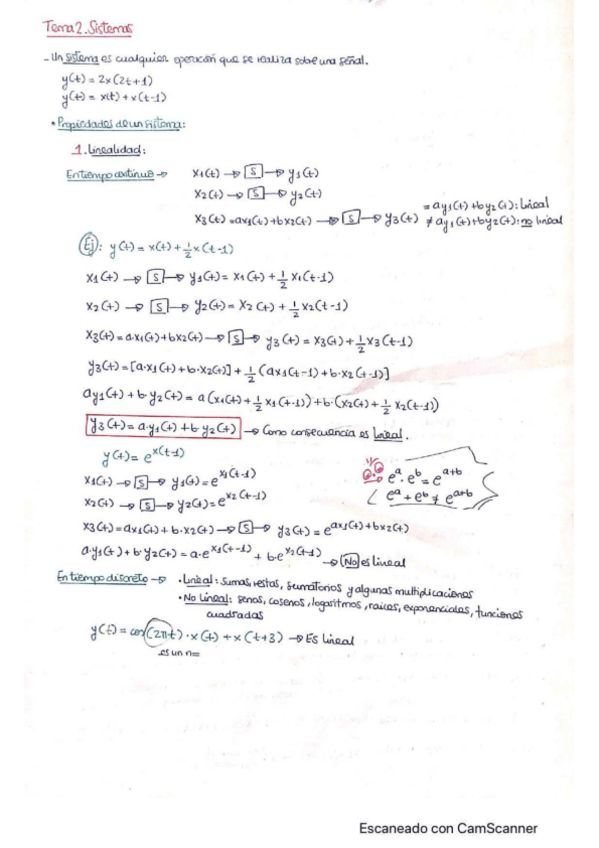 Tema 2. Sistemas
- Un sistema es cualquier operación que se realiza sobre una señal.
y(t) = 2x(2t+1)
y(t) = x(t) + x(t-1)
• Propiedades de un sistema:
1. Linealidad:
En tiempo continuo → x1(t) → [S] → y1(t)
x2(t) → [S] → y2(t)
x3(t) = ax1(t) + bx2(t) → [S] → y3(t) = ay1(t) + by2(t): lineal
≠ ay1(t) + by2(t): no lineal
Ej: y(t) = x(t) + 1/2 x(t-1)
x1(t) → [S] → y1(t) = x1(t) + 1/2 x1(t-1)
x2(t) → [S] → y2(t) = x2(t) + 1/2 x2(t-1)
x3(t) = a·x1(t) + bx2(t) → [S] → y3(t) = x3(t) + 1/2 x3(t-1)
y3(t) = [a·x1(t) + b·x2(t)] + 1/2 (ax1(t-1) + b·x2(t-1)]
ay1(t) + b·y2(t) = a(x1(t) + 1/2 x1(t-1)) + b·(x2(t) + 1/2 x2(t-1))
y3(t) = a·y1(t) + b·y2(t) → Como consecuencia es lineal.
y(t) = e^x(t-1)
x1(t) → [S] → y1(t) = e^x1(t-1)
e^a · e^b = e^a+b
x2(t) → [S] → y2(t) = e^x2(t-1)
e^a + e^b ≠ e^a+b
x3(t) = ax1(t) + b·x2(t) → [S] → y3(t) = e^ax1(t)+bx2(t)
a·y1(t) + b·y2(t) = a·e^x1(t-1) + b·e^x2(t-1) → No es lineal
En tiempo discreto → • Lineal: sumas, restas, sumatorios y algunas multiplicaciones
• No lineal: senos, cosenos, logaritmos, raíces, exponenciales, funciones
cuadradas
y(t) = cos(2πt)·x(t) + x(t+3) → Es lineal
es un n=
Escaneado con CamScanner